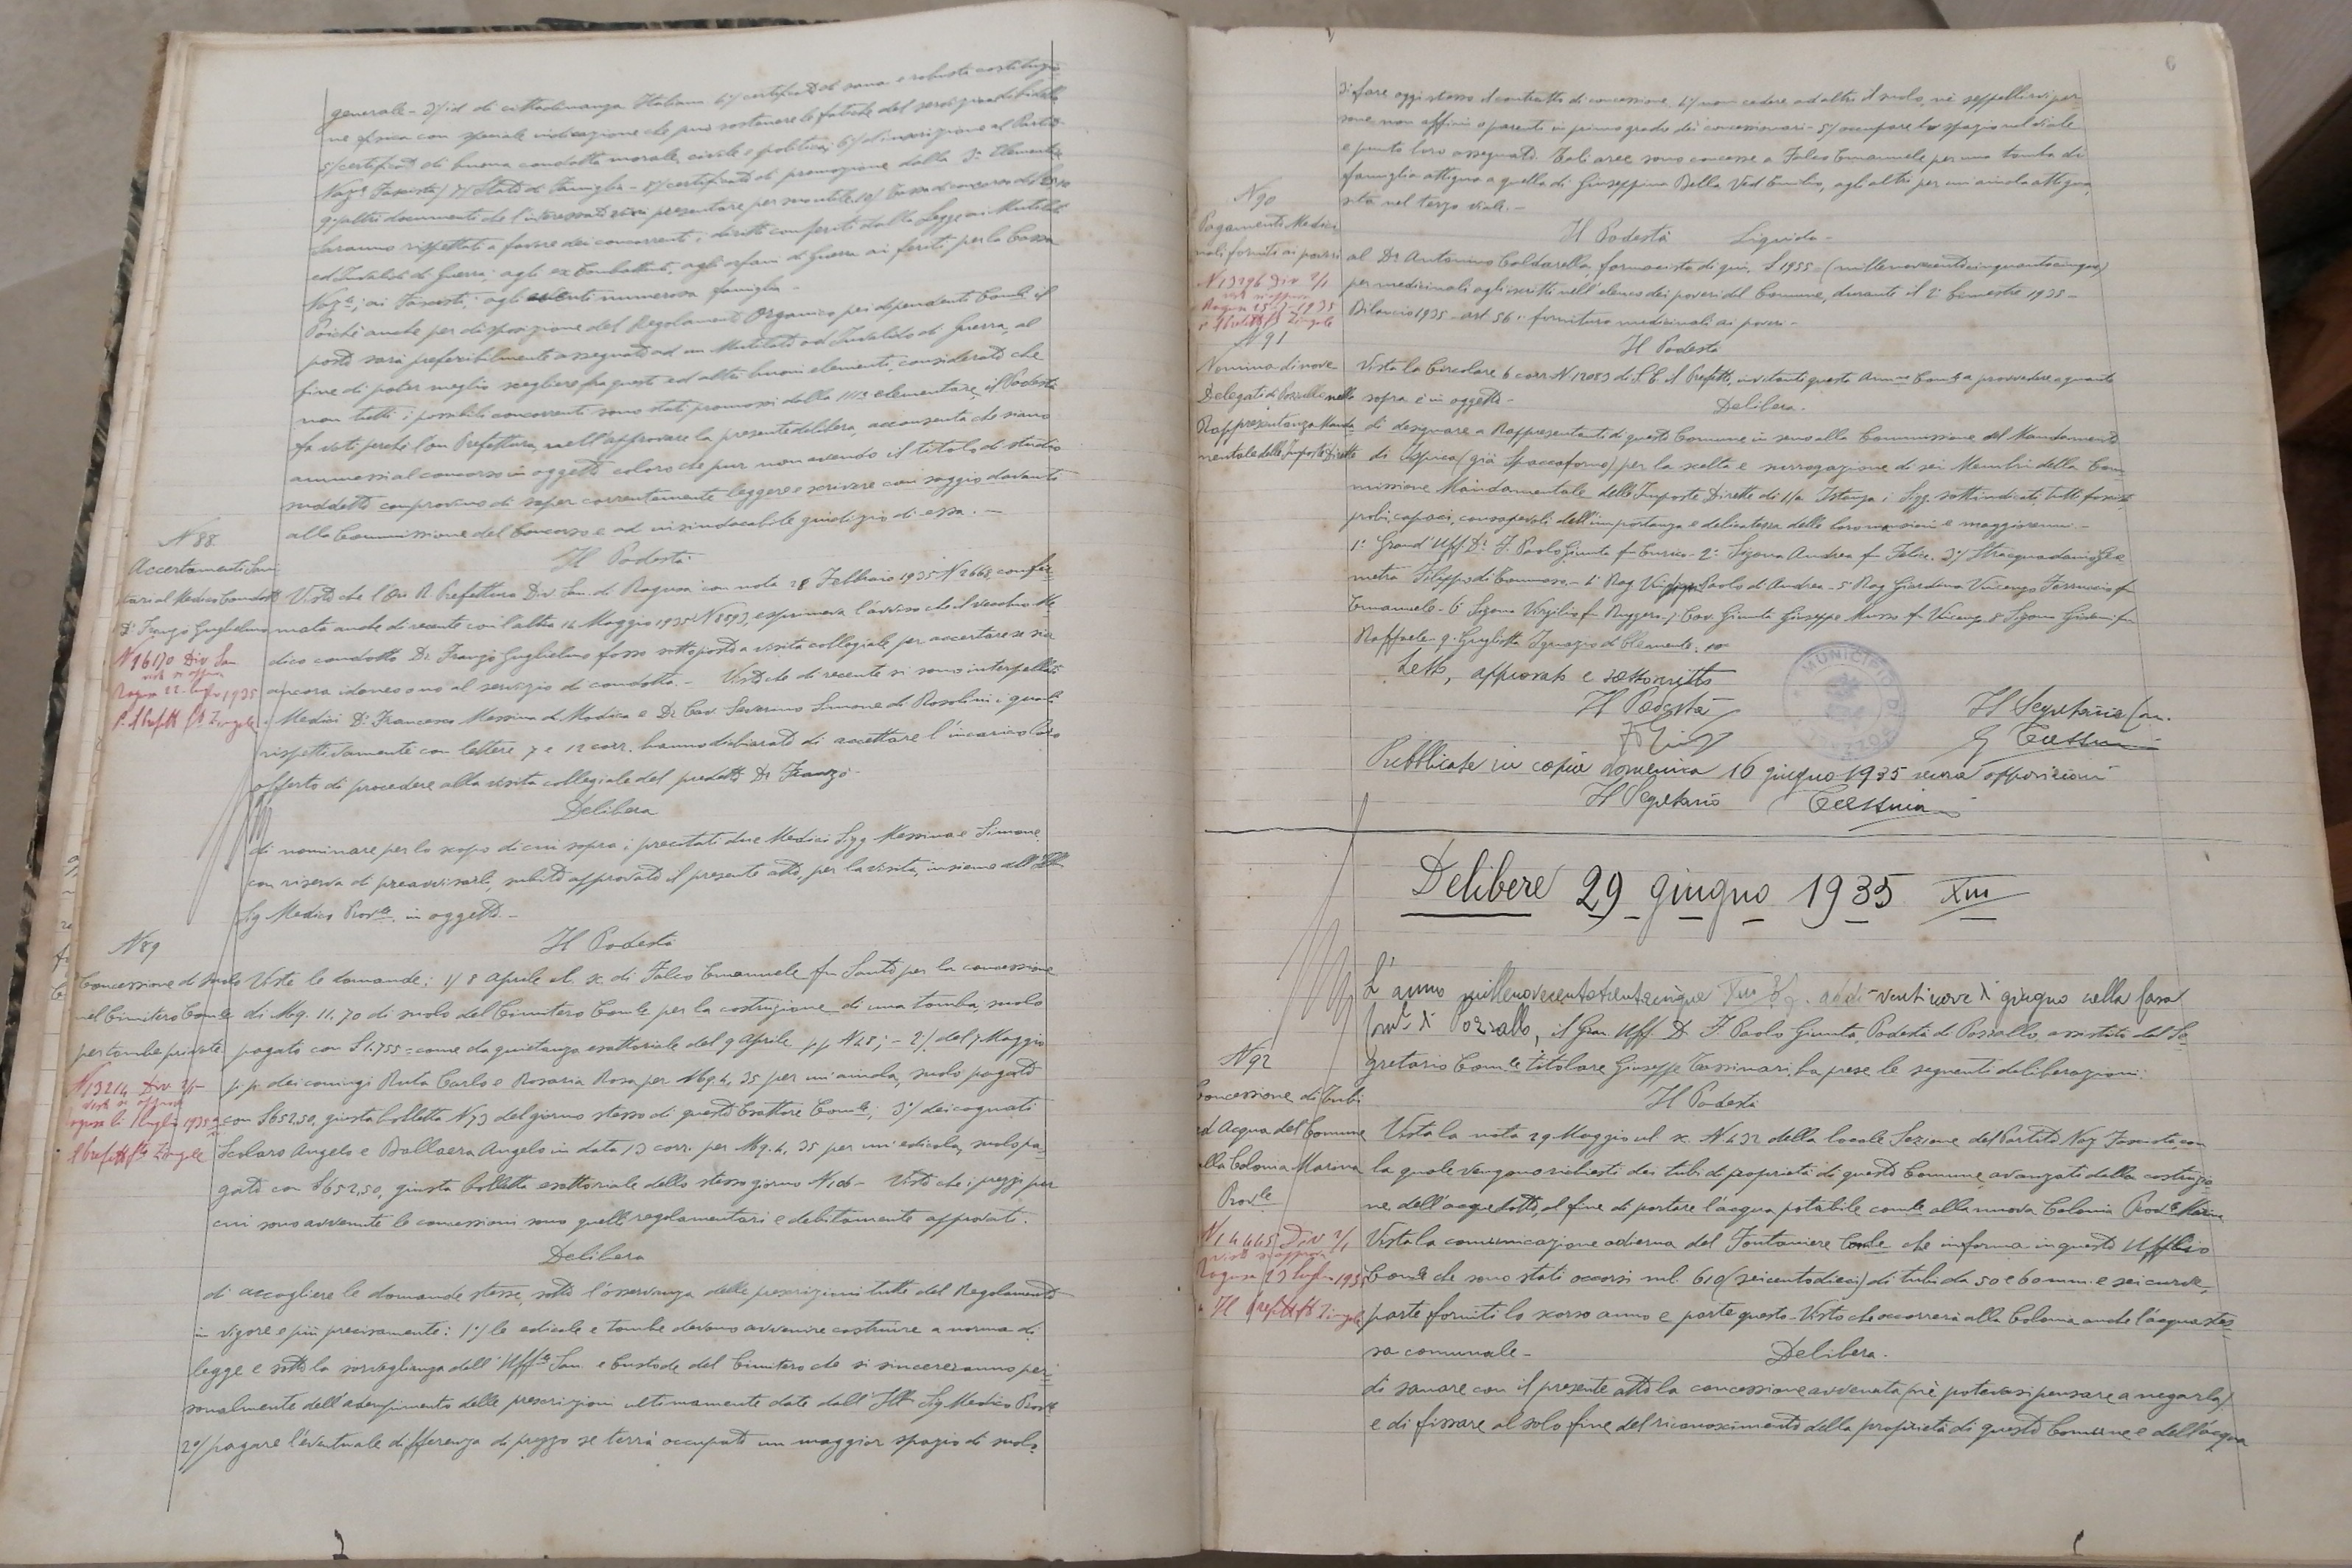 generale - 3°/ id di cittadinanza Italiana 4°/ certificato di sana e robusta costituzio
ne fisica con speciale indicazione che può sostenere le fatiche del servizio
5°/ certificato di buona condotta morale, civile e politica; 6°/ d'inscrizione al Partito
Naz.le Fascista/ 7°/ Stato di Famiglia - 8°/ certificato di promozione dalla 3ª Elementare
9°/ altri documenti che l'interessato presentare per suo utile 10°/ Tassa di concorso di
Saranno rispettati a favore dei concorrenti i diritti conferiti dalla Legge ai Mutilati
ed Invalidi di Guerra; agli ex Combattenti, agli orfani di Guerra ai feriti per la Causa
Naz.le; ai Fascisti; agli aventi numerosa famiglia -
Poichè anche per disposizione del Regolamento Organico pei dipendenti Com.li il
posto sarà preferibilmente assegnato ad un Mutilato od Invalido di Guerra, al
fine di poter meglio scegliere fra questi ed altri buoni elementi, considerato che
non tutti i possibili concorrenti sono stati promossi dalla IIIª elementare, il Podestà
fa voti perchè l'On Prefettura, nell'approvare la presente delibera, acconsenta che siano
ammessi al concorso in oggetto coloro che pur non avendo il titolo di studio
suddetto comprovino di saper correntemente leggere e scrivere con saggio davanti
alla Commissione del Concorso e ad insindacabile giudizio di essa. -
N 88
Accertamenti Sani
tari al Medico Condotto
Dr Franzò Guglielmo
N 16170 Div San
visto si approva
Ragusa 22 luglio 1935
p. Il Prefetto fto Zingale
Il Podestà
Visto che l'On R. Prefettura Div. San. di Ragusa con nota 28 Febbraio 1935 N 2662, confer
mata anche di recente con l'altra 14 Maggio 1935 N 8893, esprimeva l'avviso che il vecchio Me
dico condotto Dr. Franzò Guglielmo fosse sottoposto a visita collegiale per accertare se sia
ancora idoneo o no al servizio di condotta. - Visto che di recente si sono interpellati
i Medici Dr Francesco Messina di Modica e Dr Cav Saverino Simone di Rosolini i quali
rispettivamente con lettere 7 e 12 corr. hanno dichiarato di accettare l'incarico loro
offerto di procedere alla visita collegiale del predetto Dr Franzò -
Delibera
di nominare per lo scopo di cui sopra i precitati due Medici Sigg Messina e Simone
con riserva di preavvisarli, subito approvato il presente atto, per la visita, insieme all'Ill
Sig Medico Prov.le, in oggetto. -
N 89
Concessione di suolo
nel Cimitero Com.le
per tombe private
N 13214 Div 2/1
visto si approva
Ragusa li 1 luglio 1935
Il Prefetto fto Zingale
Il Podestà
Viste le domande: 1°/ 8 aprile u. s. di Falco Emanuele fu Santo per la concessione
di Mq. 11.70 di suolo del Cimitero Com.le per la costruzione di una tomba, suolo
pagato con £ 1.755 = come da quietanza esattoriale del 9 Aprile pp N 45; - 2°/ del 7 Maggio
p. p. dei coniugi Ruta Carlo e Rosaria Rosa per Mq. 4,35 per un'aiuola, suolo pagato
con £ 652,50, giusta bolletta N 73 del giorno stesso di questo Esattore Com.le; 3°/ dei cognati
Scolaro Angelo e Ballaera Angelo in data 13 corr. per Mq. 4,35 per un'edicola, suolo pa
gato con £ 652,50, giusta bolletta esattoriale dello stesso giorno N 106 - Visto che i prezzi per
cui sono avvenute le concessioni sono quelli regolamentari e debitamente approvati.
Delibera
di accogliere le domande stesse, sotto l'osservanza delle prescrizioni tutte del Regolamento
in vigore e più precisamente: 1°/ le edicole e tombe devono avvenire costruire a norma di
legge e sotto la sorveglianza dell'Uff.le San. e Custode del Cimitero che si sincereranno per
sonalmente dell'adempimento delle prescrizioni ultimamente date dall'Ill Sig Medico Prov.le
2°/ pagare l'eventuale differenza di prezzo se terrà occupato un maggior spazio di suolo
6
3° fare oggi stesso il contratto di concessione 4°/ non cedere ad altri il suolo, nè seppellirvi per
sone non affini o parenti in primo grado dei concessionari - 5°/ occupare lo spazio nel viale
e punto loro assegnato. Tali aree sono concesse a Falco Emanuele per una tomba di
famiglia attigua a quella di Giuseppina Bella Ved Emilio, agli altri per un'aiuola attigua,
sita nel terzo viale. -
N 90
Pagamento Medici
nali forniti ai poveri
N 13296 Div 2/1
visto si approva
Ragusa 25-7-1935
p. Il Prefetto fto Zingale
Il Podestà Liquida -
al Dr Antonino Caldarella, farmacista di qui, £ 1955 = (millenovecentocinquantacinque)
per medicinali agli iscritti nell'elenco dei poveri del Comune, durante il 2° bimestre 1935 -
Bilancio 1935 - art 56: fornitura medicinali ai poveri -
N 91
Nomina di nove
Delegati Comunali nella
Rappresentanza Manda
mentale delle Imposte Dirette
Il Podestà
Vista la Circolare 6 corr N 12083 di S. E. il Prefetto, invitante questa Amm.ne Com.le a provvedere a quanto
sopra è in oggetto - Delibera.
di designare a Rappresentanti di questo Comune in seno alla Commissione del Mandamento
di Ispica (già Spaccaforno) per la scelta e surrogazione di sei Membri della Com
missione Mandamentale delle Imposte Dirette di 1ª Istanza i Sigg. sottindicati, tutti fascisti,
probi, capaci, consapevoli dell'importanza e delicatezza delle loro mansioni e maggiorenni. -
1° Grand'Uff. Dr. F. Paolo Giunta fu Enrico - 2° Sigona Andrea fu Felice. 3°/ Stracquadanio Geo
metra Filippo di Tommaso. - 4° Rag Paolo di Andrea - 5° Rag Giardina Vincenzo Ferruccio fu
Emanuele - 6° Sigona Virgilio fu Ruggero. 7° Cav. Giunta Giuseppe Musso fu Vincenzo 8° Sigona Giovanni fu
Raffaele - 9° Guglielta Ignazio di Clemente.
Letto, approvato e sottoscritto
Il Podestà
Il Segretario Com.
G Tassinari
MUNICIPIO DI POZZALLO
Pubblicate in copia domenica 16 giugno 1935 senza opposizioni
Il Segretario Tassinari
Delibere 29 giugno 1935 XIII
L'anno millenovecentotrentacinque XIII E.F. addì ventinove di giugno nella Casa
Com.le di Pozzallo, il Gran. Uff. Dr F. Paolo Giunta, Podestà di Pozzallo, assistito dal Se
gretario Com.le titolare Giuseppe Tassinari, ha prese le seguenti deliberazioni:
N 92
Concessione di Tubi
ed Acqua del Comune
alla Colonia Marina
Prov.le
N 14445 Div 2/1
visto si approva
Ragusa 23 luglio 1935
p Il Prefetto fto Zingale
Il Podestà
Vista la nota 29 Maggio u. s. N 432 della locale Sezione del Partito Naz Fascista, con
la quale vengono richiesti dei tubi di proprietà di questo Comune, avanzati dalla costruzio
ne dell'acquedotto, al fine di portare l'acqua potabile com.le alla nuova Colonia Prov.le Marina
Vista la comunicazione odierna del Fontaniere Com.le che informa in questo Ufficio
Com.le che sono stati occorsi ml. 610 (seicentodieci) di tubi da 50 e 60 mm. e sei curve,
parte forniti lo scorso anno e parte questo - Visto che occorrerà alla Colonia anche l'acqua stes
sa comunale - Delibera.
di sanare con il presente atto la concessione avvenuta (nè potevasi pensare a negarla)
e di fissare al solo fine del riconoscimento della proprietà di questo Comune e dell'acqua